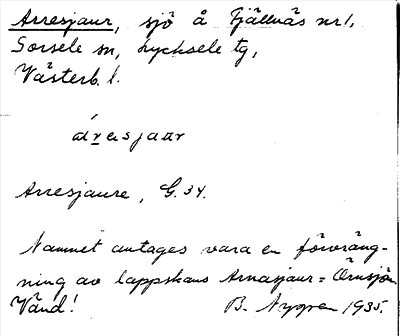 Arresjaur, sjö å Fjällnäs nr 1,
Sorsele sn, Lycksele tg,
Västerb. l.
áresjaur
Arresjaure, G. 34.
Namnet antages vara en förvräng-
ning av lappskans Arnasjaur = Örnsjön
Vänd! B. Nygren 1935.